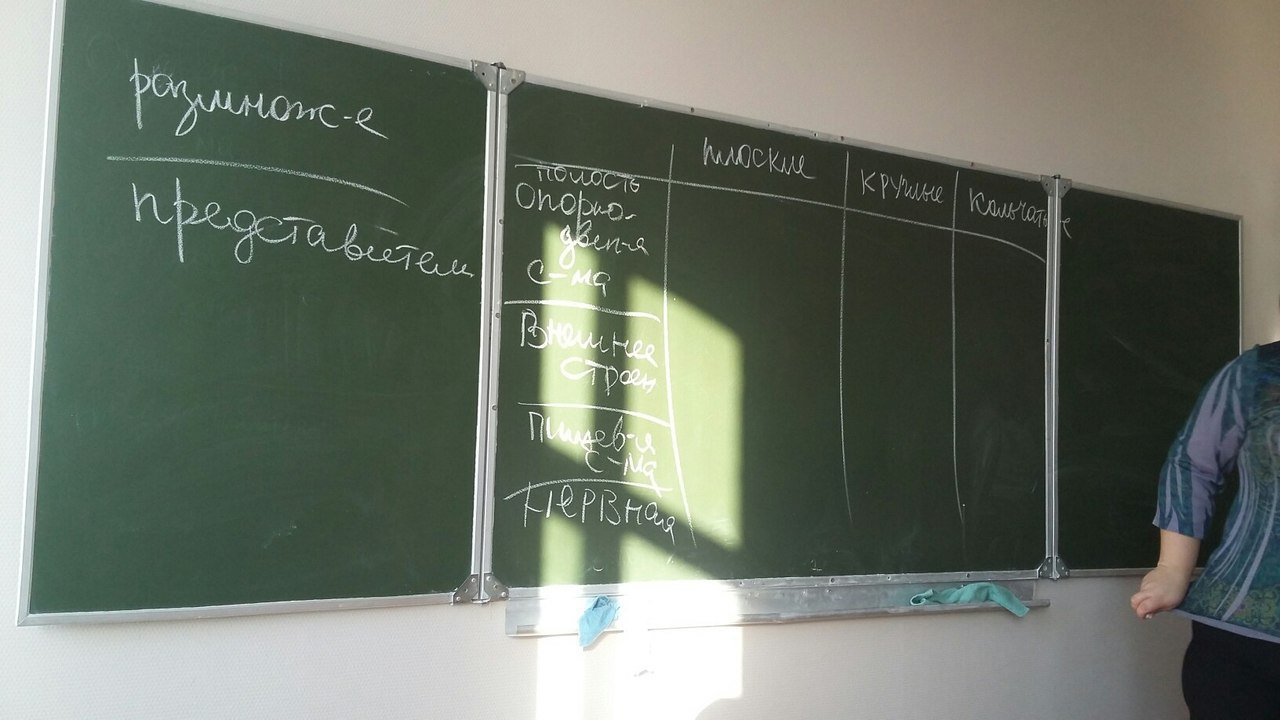 размнож-е
представители
плоские
круглые
кольчатые
полость
Опорно-
двег-я
с-ма
Внешнее
строен
Пищев-я
с-ма
Нервная